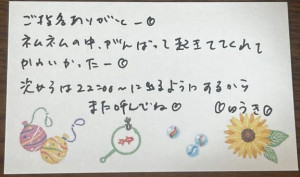 ご指名ありがとー☺
ネムネムの中、がんばって起きててくれて
かわいかったー☺
次からは22:00〜に出るようにするから
また呼んでね☺ ♡ゆうき♡